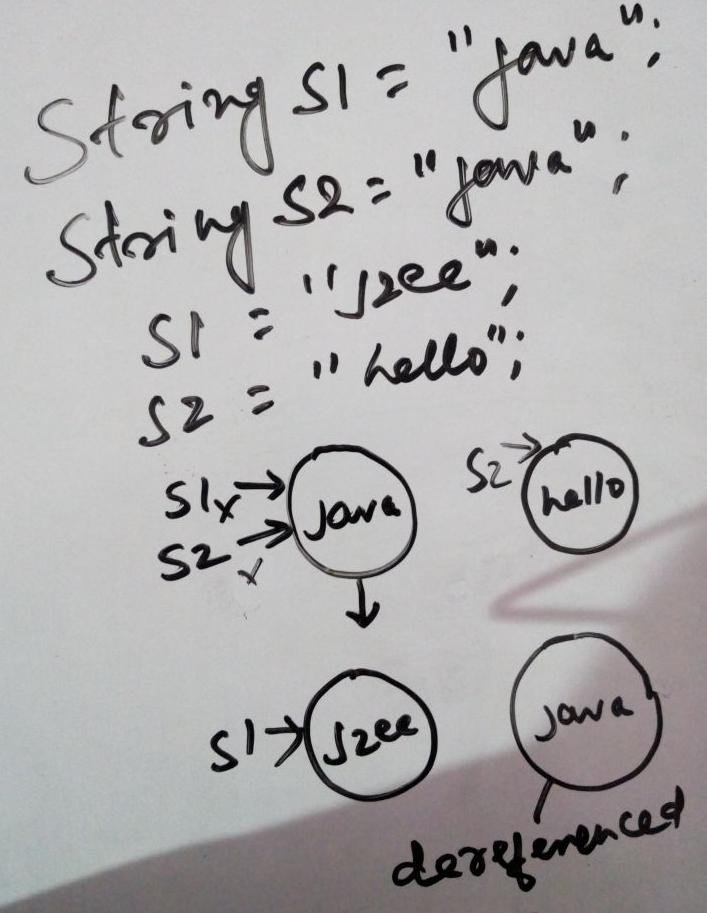 String S1 = "java";
String S2 = "java";
S1 = "J2ee";
S2 = "hello";
S1x → java
S2 x →
S2 → hello
S1 → J2ee
java
dereferenced